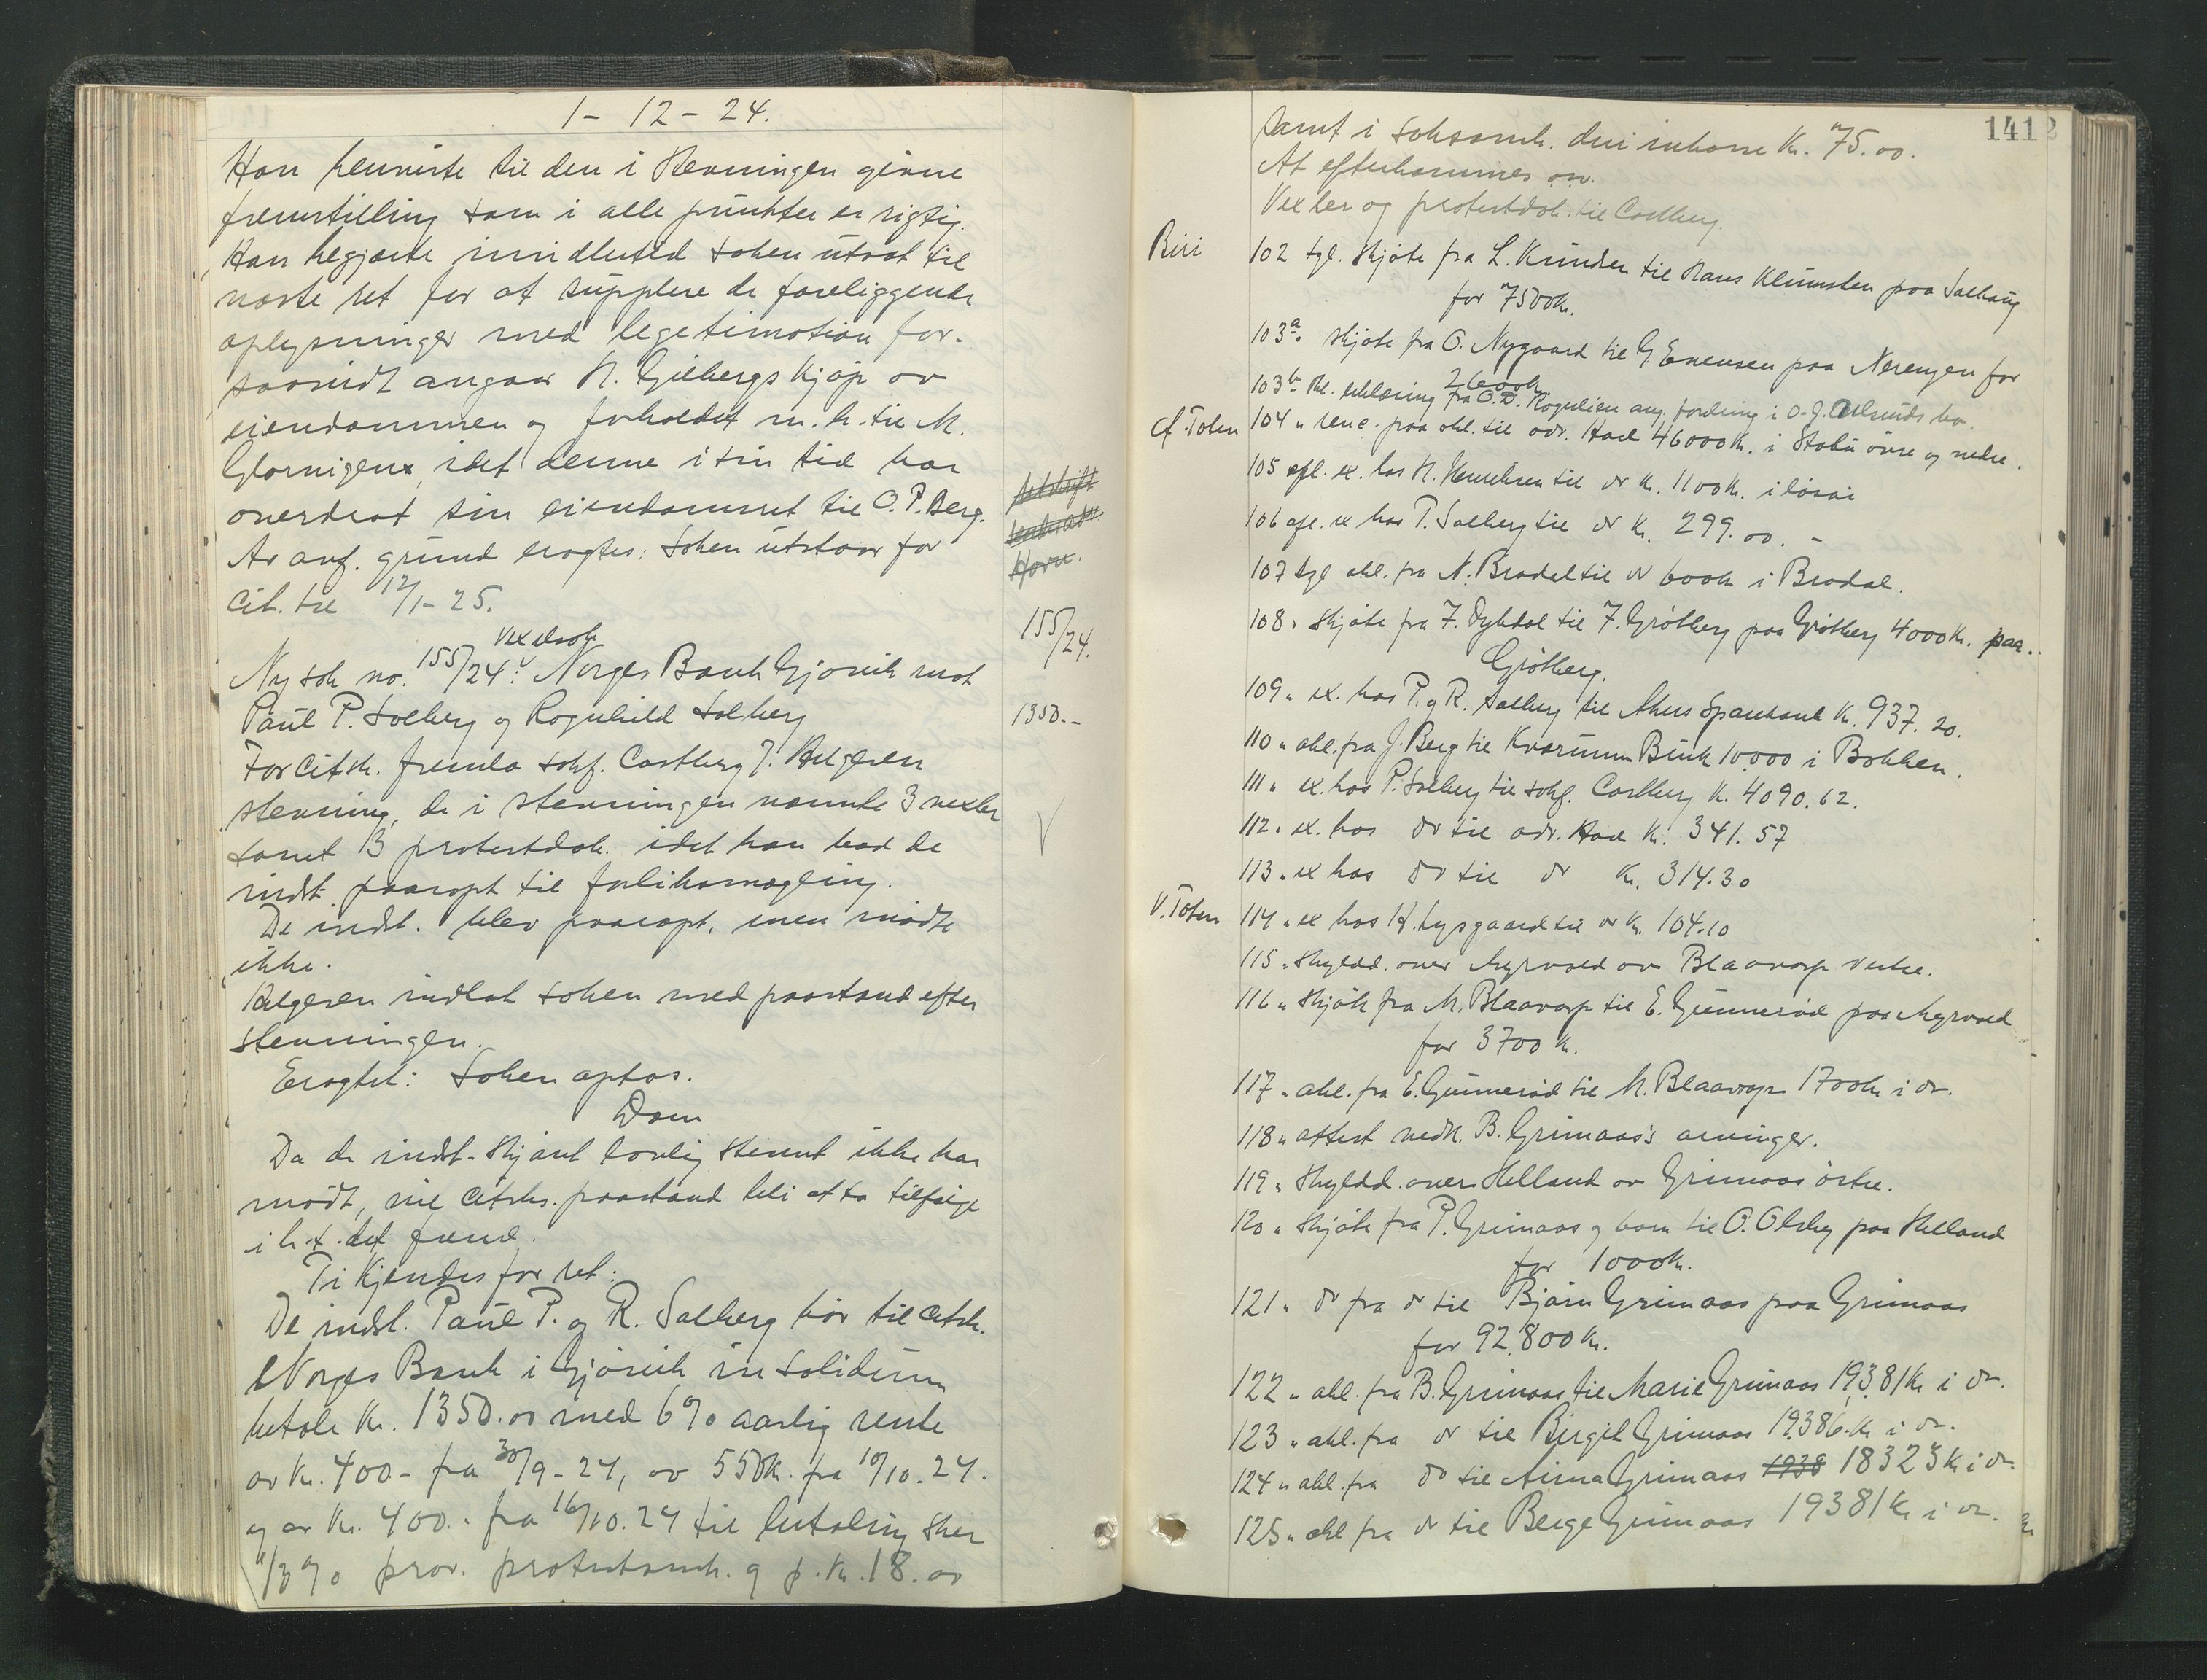 1 - 12 - 24.
Han henviste til den i stevningen givne
fremstilling som i alle punkter er rigtig.
Han begjærte imidlertid saken utsat til
næste ret for at supplere de foreliggende
oplysninger med legetimation for-
saavidt angaar N. Gilbergs kjøp av
eiendommen og forholdet m.h.til M.
idet denne i sin tid har
overdrat sin eiendomsret til O. P. Berg.
Av anf. grund eragtes: Saken utstaar for
cit. til 12/1-25.
Vexelsak
Ny sak no. 155/24: Norges Bank Gjøvik mot
Paul P. Solberg og Ragnhild Solberg
For citsk. fremla sakf. Castberg j. følgeren
stevning, de i stevningen nævnte 3 vexler
samt 3 protestdok. idet han bad de
indst. paaropt til forliksmægling.
De indst. blev paaropt, men mødte
ikke.
Følgeren indlot saken med paastand efter
stevningen.
Eragtet: Saken optas.
Dom
Da de indst. skjønt lovlig stevnt ikke har
mødt, vil citsks. paastand bli at ta tilfølge
i h.t. det fremk.
Ti kjendes for ret:
De indst. Paul P. og R. Solberg bør til citsk.
Norges Bank i Gjøvik in solidum
betale kr. 1350.00 med 6% aarlig rente
av kr. 400- fra 30/9-24, av 550kr. fra 10/10.24.
og av kr. 400.- fra 16/10.24 til betaling sker
1/3 % prov. protestomk. og p. kr. 18.00
Utskrift
Horn.
155/24.
1350.-
1412
samt i saksomk. den inkasse kr. 75.00.
At efterkommes o.s.v.
Vexler og protestdok. til Castberg.
Biri
102 tgl. skjøte fra L. Knudsen til Hans Klumsten paa Solhaug
for 7500kr.
103a. skjøte fra O. Nygaard til G. Evensen paa Nerengen for
2600kr
103b. erklæring fra O. D. ang. fordring i O. J. bo.
Ø. Toten
104 " paa obl. til adr. Hoel 46000kr. i Stabu øvre og nedre.
105 apl. ex. hos H. Henriksen til dr kr. 1100kr. i løsøre
106 apl. ex hos P. Solberg til dr kr. 299.00. -
107 tgl obl. fra N. Brodal til dr 600kr i Brodal.
108 " skjøte fra F. Dybdal til F. Grøtberg paa Grøtberg 4000kr. paa..
Grøtberg.
109 " ex. hos P. og R. Solberg til Akers Sparebank kr. 937.20.
110 " obl. fra J. Berg til Kværnum Bruk 10.000 i Bakken.
111 " ex. hos P. Solberg til sakf. Castberg kr. 4090.62.
112 " ex. hos dr til adr. Hoel kr. 341.57
113 " ex hos dr til dr kr. 314.30
V. Toten
114 " ex hos H. Lysgaard til dr kr. 104.10
115 " skyldd. over Myrvold av Blaavarp vestre.
116 " skjøte fra M. Blaavarp til E. Gunnerød paa Myrvold
for 3700 kr.
117 " obl. fra E. Gunnerød til M. Blaavarp 1700kr i dr.
118 " attest vedk. B. Grimaas's arvinger.
119 " skyldd. over Helland av Grimaas østre.
120 " skjøte fra P. Grimaas og barn til O. Olsby paa Helland
for 1000kr.
121 " dr fra dr til Bjørn Grimaas paa Grimaas
for 92.800kr.
122 " obl. fra B. Grimaas til Marie Grimaas 19381kr i dr.
123 " obl. fra dr til Birgit Grimaas 19386.kr i dr.
124 " obl. fra dr til Anna Grimaas 1938 18323kr i dr.
125 " obl fra dr til Berge Grimaas 19381kr i dr.